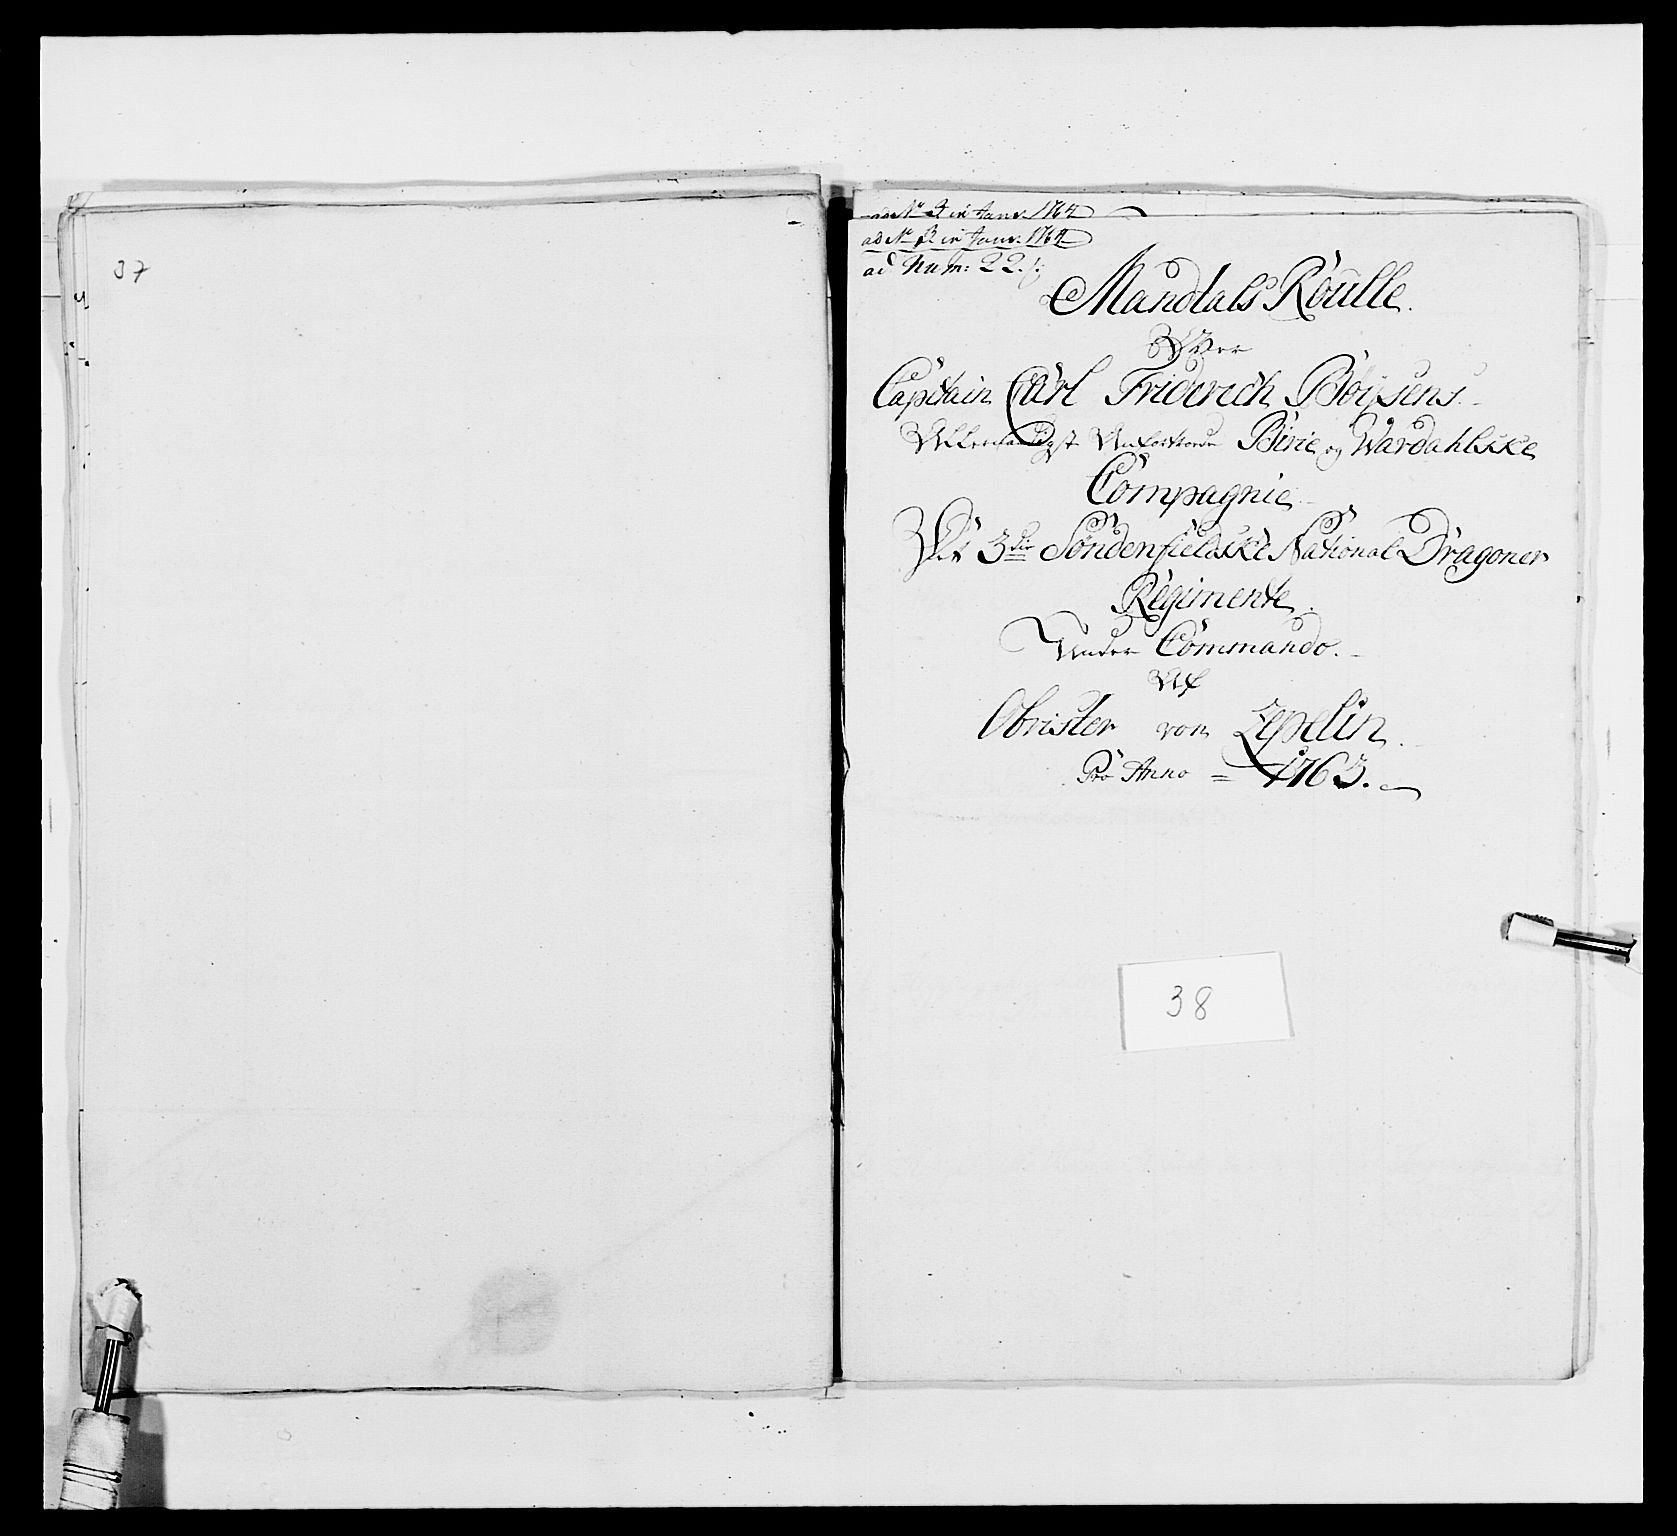 37
ad No 2 in Janr: 1764
ad No 2 in Janr: 1764
ad Num: 22./.
Mandtals Roulle.
Over
Capitain Carl Friderich Böÿsens
Allernaadigst Anfortroede Birie og Wardahlske
Compagnie
Ved 3die Söndenfieldske National Dragoner
Regimente.
Under Commando.
Af
Obrister von Zepelin.
Pro Anno = 1763.
38